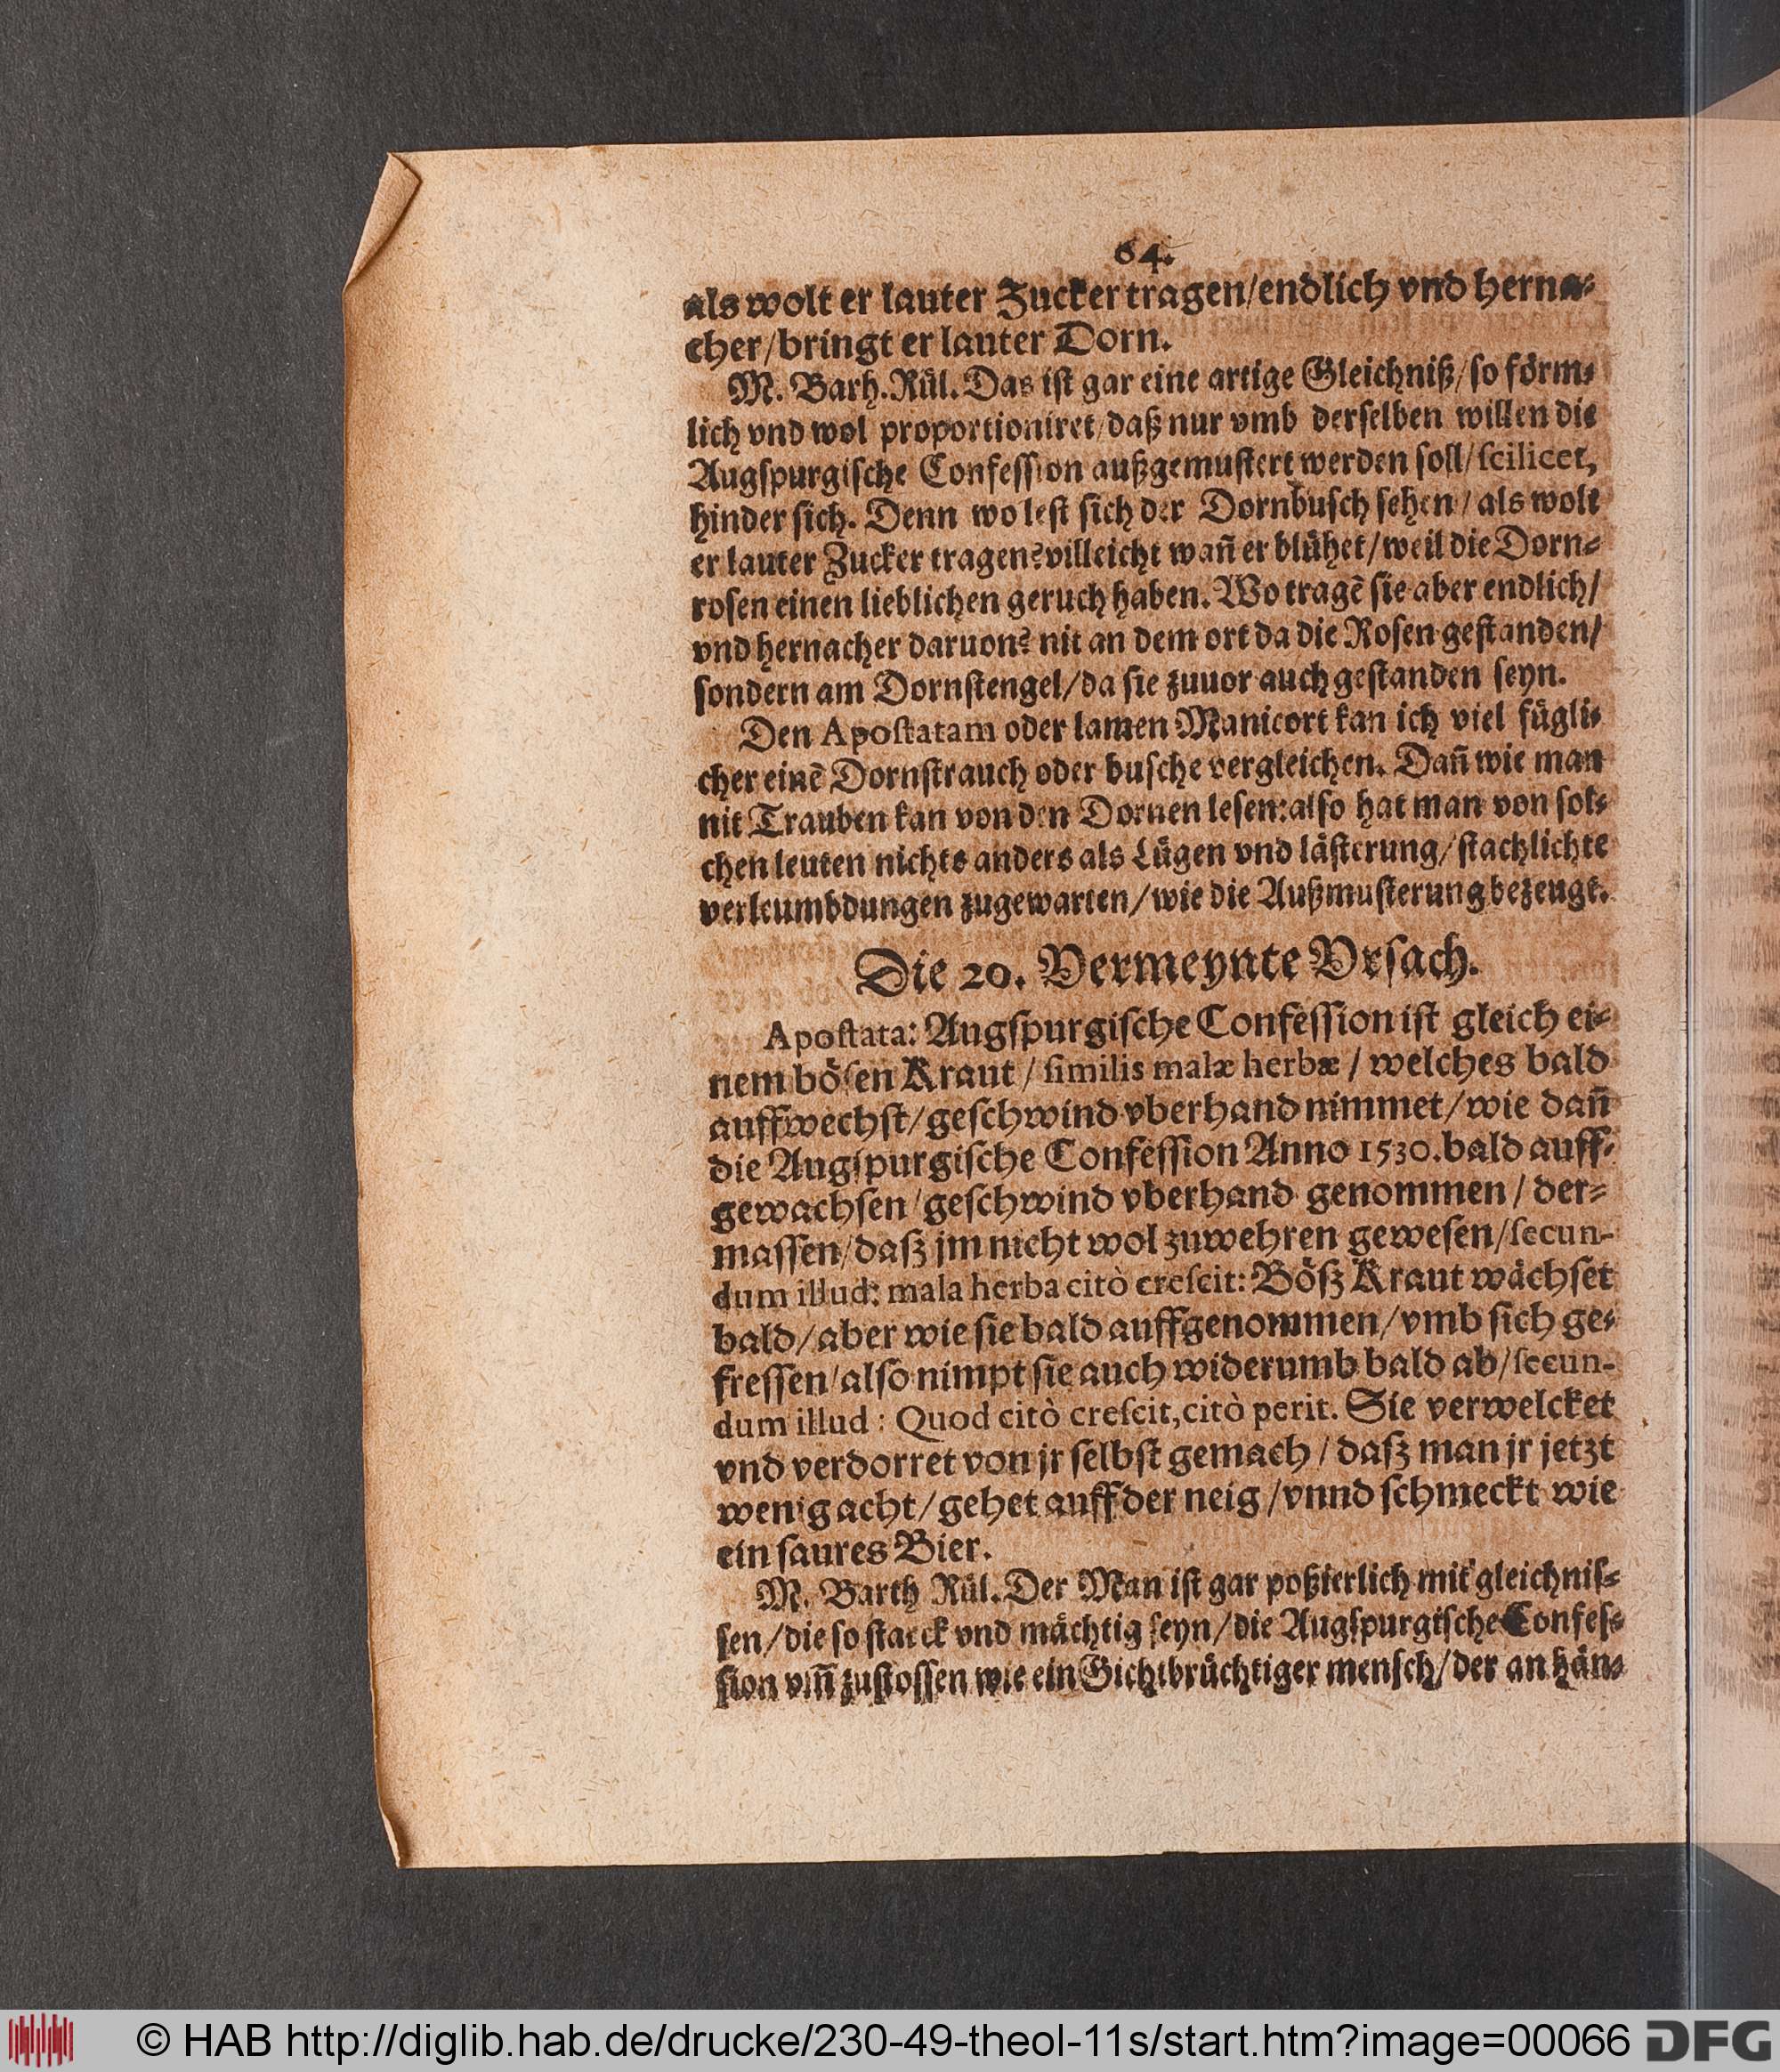 64.
als wolt er lauter Zucker tragen/endlich vnd herna⸗
cher/bringt er lauter Dorn.
M. Barh. Rül. Das ist gar eine artige Gleichniß/so förm⸗
lich vnd wol proportioniret/daß nur vmb derselben willen die
Augſpurgiſche Confeſſion außgemuſtert werden ſoll/ ſcilicet,
hinder ſich. Denn wo leſt ſich der Dornbuſch ſehen/ als wolt
er lauter Zucker tragen? villeicht wañ er blühet/weil die Dorn⸗
roſen einen lieblichen geruch haben. Wo tragē ſie aber endlich/
vnd hernacher daruon? nit an dem ort da die Roſen geſtanden/
ſondern am Dornſtengel/da ſie zuuor auch geſtanden ſeyn.
Den Apoſtatam oder lamen Manicort kan ich viel fügli⸗
cher einē Dornſtrauch oder buſche vergleichen. Dañ wie man
nit Trauben kan von den Dornen leſen: alſo hat man von ſol⸗
chen leuten nichts anders als Lügen vnd läſterung/ſtachlichte
verleumbdungen zugewarten/wie die Außmuſterung bezeugt.
Die 20. Vermeynte Vrſach.
Apoſtata: Augſpurgiſche Confeſſion iſt gleich ei⸗
nem böſen Kraut / ſimilis malæ herbæ / welches bald
auffwechſt/geſchwind vberhand nimmet/wie dañ
die Augſpurgiſche Confeſſion Anno 1530. bald auff⸗
gewachſen/geſchwind vberhand genommen / der⸗
maſſen/daß jm nicht wol zuwehren geweſen/ſecun-
dum illud: mala herba citò creſcit: Böß Kraut wächſet
bald/aber wie ſie bald auffgenommen/vmb ſich ge⸗
freſſen/alſo nimpt ſie auch widerumb bald ab/ſecun-
dum illud : Quod citò creſcit, citò perit. Sie verwelcket
vnd verdorret von jr ſelbſt gemach / daß man jr jetzt
wenig acht/gehet auff der neig/vnnd ſchmeckt wie
ein ſaures Bier.
M. Barth Rül. Der Man iſt gar poßierlich mit gleichniſ⸗
ſen/die ſo ſtarck vnd mächtig ſeyn/die Augſpurgiſche Confeſ⸗
ſion vm̃ zuſtoſſen wie ein Gichtbrüchtiger menſch/der an hän⸗
© HAB http://diglib.hab.de/drucke/230-49-theol-11s/start.htm?image=00066 DFG